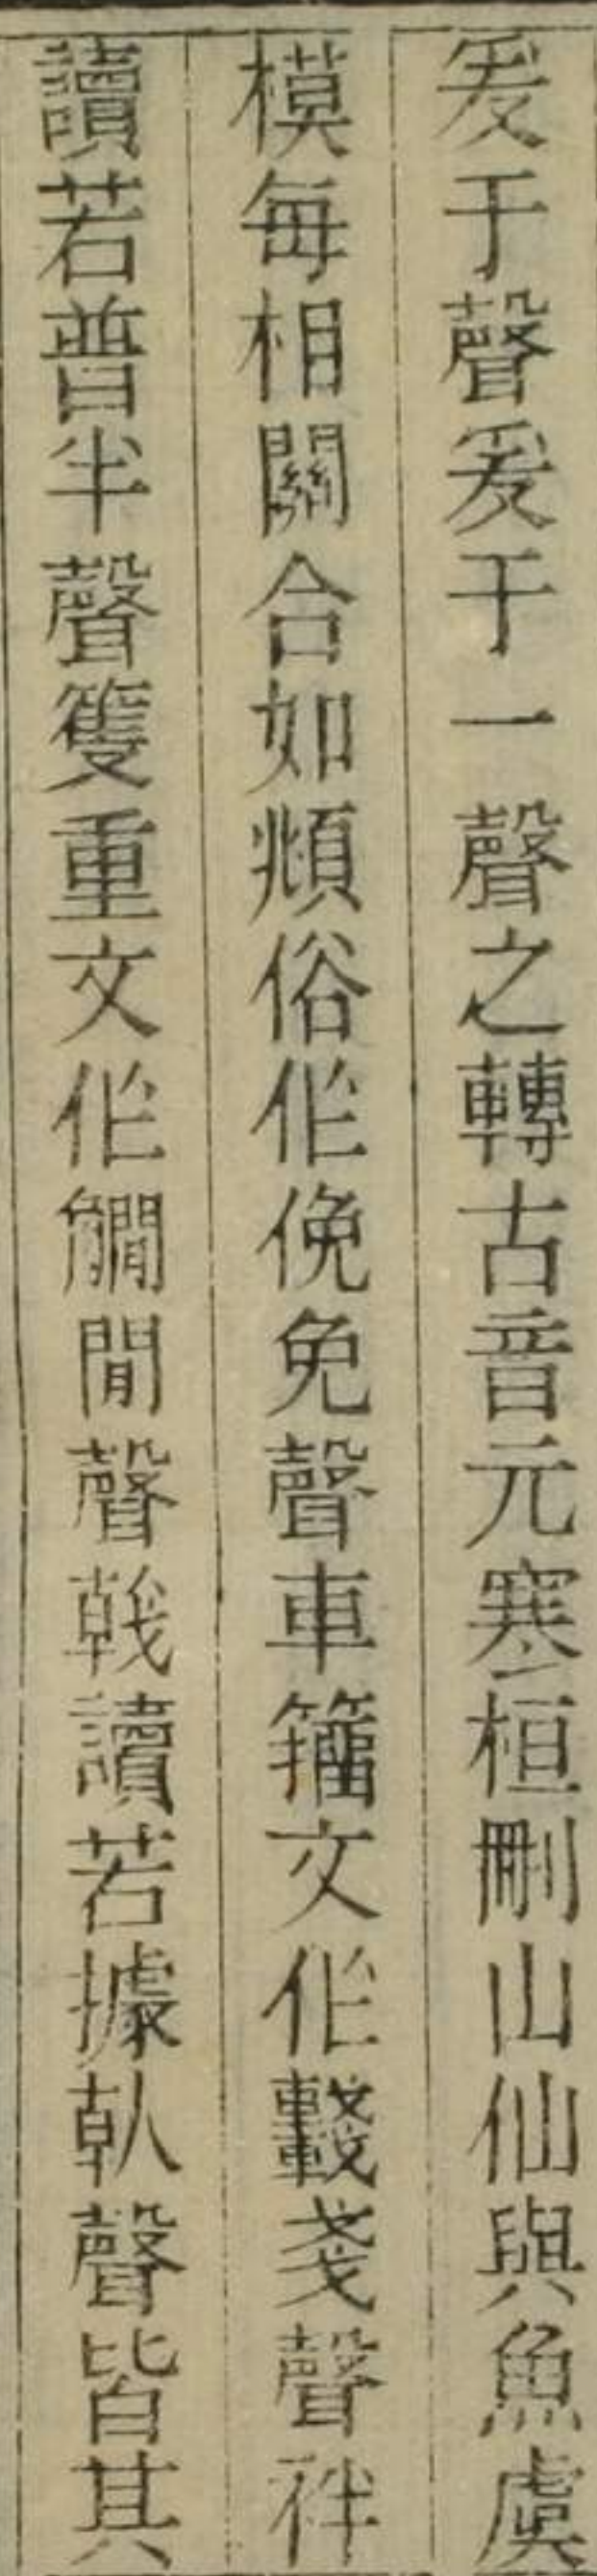 爰于聲爰于一聲之轉古音元寒桓刪山仙與魚虞
模每相關合如頫俗作俛免聲車籒文作𨏖戔聲袢
讀若普半聲籆重文作䚪閒聲𢧢讀若據倝聲皆其